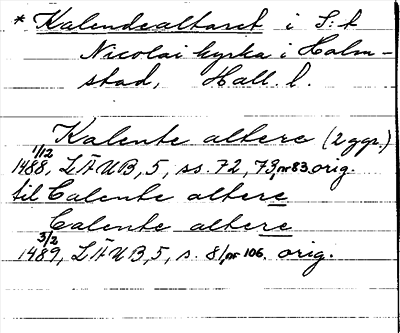 * Kalendealtaret i S:t
Nicolai kyrka i Halm-
stad, Hall. l.
Kalente altere (2 ggr.)
1/12
1488, LÄUB, 5, ss. 72, 73, nr 83. orig.
til Calente altere
Calente altere
3/2
1489, LÄUB, 5, s. 81, nr 106. orig.